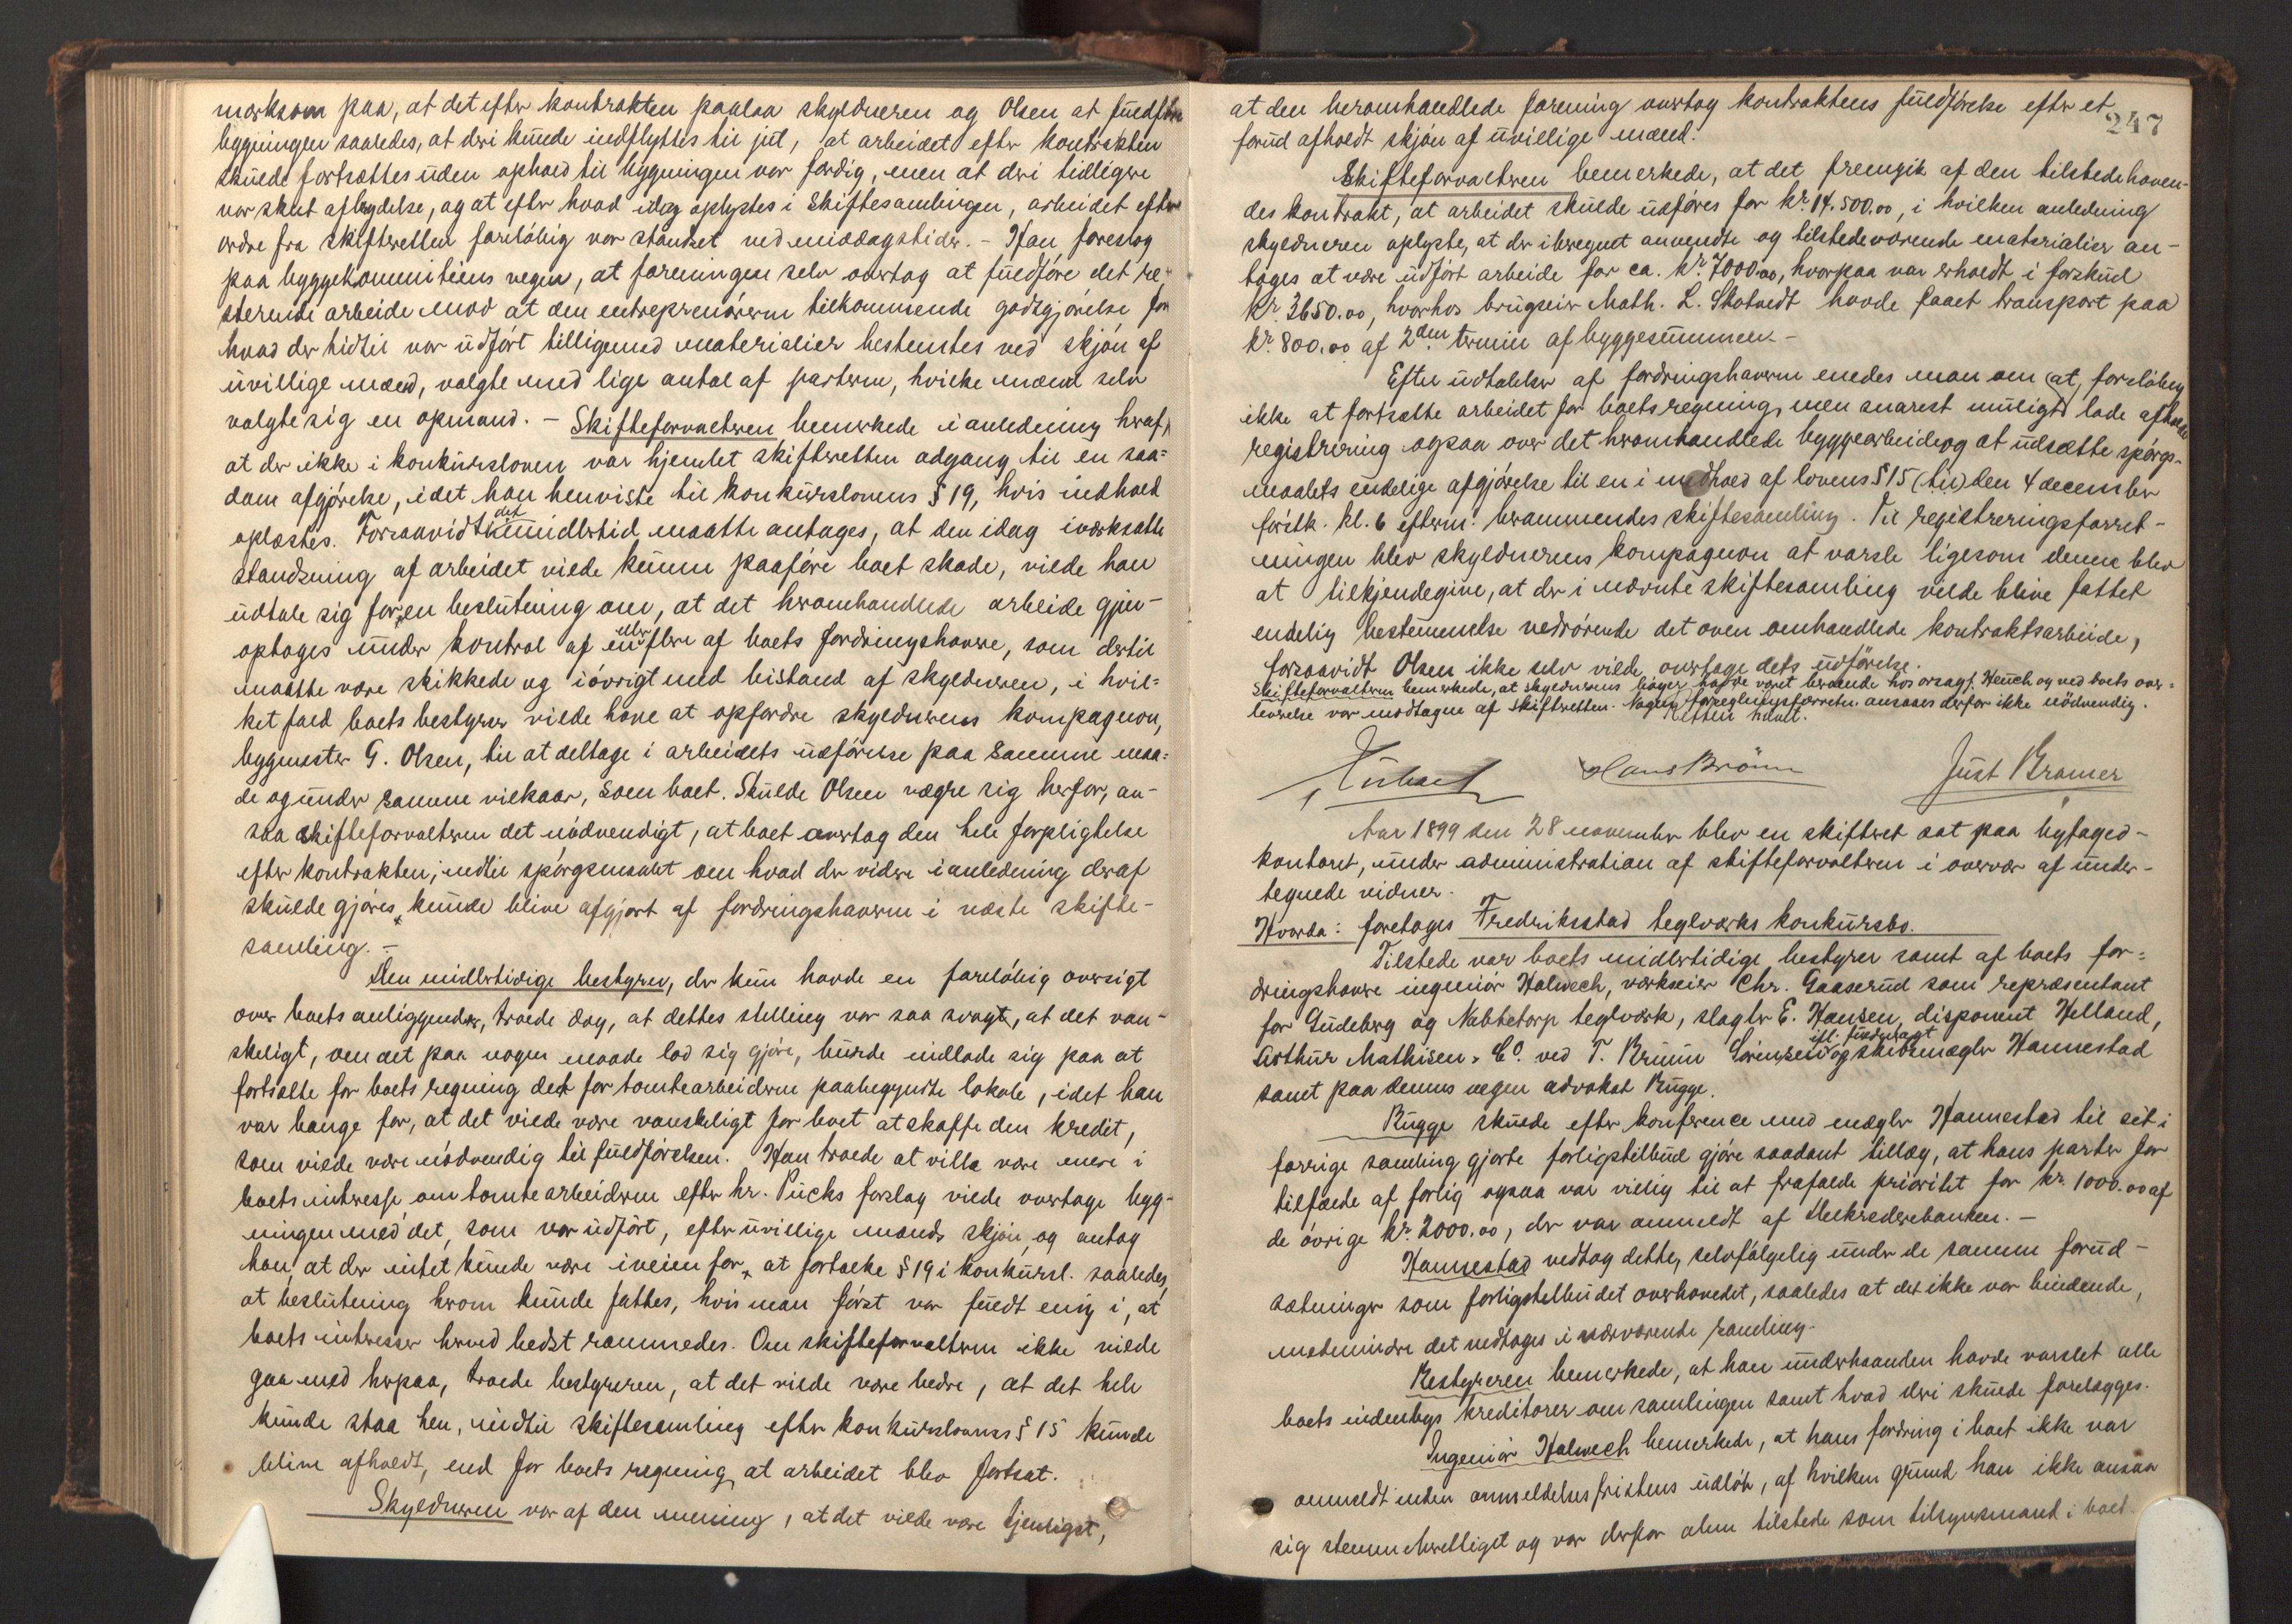 merksom paa, at det efter kontrakten paalaa skyldneren og Olsen at fuldføre
bygningen saaledes, at den kunde indflyttes til jul, at arbeidet efter kontrakten
skulde fortsættes uden ophold til bygningen var færdig, men at deri tidligere
var skeet afbrydelse, og at efter hvad idag oplystes i Skiftesamlingen, arbeidet efter
ordre fra skifteretten foreløbig var standset ved middagstider. – Han foreslog
paa byggekommiteens vegne, at foreningen selv overtog at fuldføre det re-
sterende arbeide mod at den entreprenørerne tilkommende godtgjørelse for
hvad der hidtil var udført tilligemed materialier bestemtes ved skjøn af
uvillige mænd, valgte med lige antal af parterne, hvilke mænd selv
valgte sig en opmand. – Skifteforvalteren bemerkede i anledning heraf,
at der ikke i konkursloven var hjemlet skifteretten adgang til en saa=
dan afgjørelse, idet han henviste til konkurslovens § 19, hvis indhold
oplæstes. Forsaavidt det imidlertid maatte antages, at den idag iværksatte
standsning af arbeidet vilde kunne paaføre boet skade, vilde han
udtale sig for en beslutning om, at det heromhandlede arbeide gjen-
optages under kontrol af en eller flere af boets fordringshavere, som dertil
maatte være skikkede og iøvrigt med bistand af skyldneren, i hvil=
ket fald boets bestyrer vilde have at opfordre skyldnerens kompagnon,
bygmester G. Olsen, til at deltage i arbeidets udførelse paa samme maa=
de og under samme vilkaar, som boet. Skulde Olsen vægre sig herfor, an-
saa skifteforvalteren det nødvendigt, at boet overtog den hele forpligtelse
efter kontrakten; indtil spørgsmaalet om hvad der videre i anledning deraf
skulde gjøres, kunde blive afgjort af fordringshaverne i næste skifte-
samling. –
Den midlertidige bestyrer, der kun havde en foreløbig oversigt
over boets anliggender, troede dog, at dettes stilling var saa svagt, at det van-
skeligt, om det paa nogen maade lod sig gjøre, burde indlade sig paa at
fortsætte for boets regning det for tomtearbeiderne paabegyndte lokale, idet han
var bange for, at det vilde være vanskeligt for boet at skaffe den kredit,
som vilde være nødvendig til fuldførelsen. Han troede at ville være mere i
boets interesse om tomtearbeiderne efter hr. Pücks forslag vilde overtage byg-
ningen med det, som var udført, efter uvillige mænds skjøn, og antog
han, at der intet kunde være i veien for, at fortolke § 19 i konkursl. saaledes,
at beslutning herom kunde fattes, hvis man først var fuldt enig i, at
boets interesser herved bedst rammedes. Om skifteforvalteren ikke vilde
gaa med herpaa, troede bestyreren, at det vilde være bedre, at det hele
kunde staa hen, indtil skiftesamling efter konkurslovens § 15 kunde
blive afholdt, end for boets regning at arbeidet blev fortsat.
Skyldneren var af den mening, at det vilde være tjenligst,
247
at den heromhandlede forening overtog kontraktens fuldførelse efter et
forud afholdt skjøn af uvillige mænd.
Skifteforvalteren bemerkede, at det fremgik af den tilstedehaven-
des kontrakt, at arbeidet skulde udføres for kr. 14.500.00, i hvilken anledning
skyldneren oplyste, at der iberegnet anvendte og tilstedeværende materialier an-
tages at være udført arbeide for ca. kr. 7000.00, hvorpaa var erholdt i forskud
kr. 3650.00, hvorhos brugseier Math. L. Skotvedt havde faaet transport paa
kr. 800.00 af 2den termin af byggesummen. –
Efter udtalelser af fordringshaverne enedes man om at, foreløbig
ikke at fortsætte arbeidet for boets regning, men snarest muligt lade afholde
registrering ogsaa over det heromhandlede byggearbeide og at udsætte spørgs-
maalets endelige afgjørelse til en i medhold af lovens § 15 (til) den 4 december
førstk. kl. 6 efterm. berammendes skiftesamling. Til registreringsforret-
ningen blev skyldnerens kompagnon at varsle ligesom denne blev
at tilkjendegive, at der i nævnte skiftesamling vilde blive fattet
endelig bestemmelse vedrørende det oven omhandlede kontraktsarbeide,
forsaavidt Olsen ikke selv vilde overtage dets udførelse.
Skifteforvalteren bemerkede, at skyldnerens bøger havde været beroende hos orsagf. Heuch og ved boets over=
leverelse var modtagne af skifteretten. Nogen forseglingsforretn. ansaaes derfor ikke nødvendig.
Retten hævet.
Hans Brønn Just Bramer
Aar 1899 den 28 november blev en skifteret sat paa byfoged-
kontoret, under administration af skifteforvalteren i overvær af under-
tegnede vidner.
Hvorda: foretoges Fredriksstad teglværks konkursbo.
Tilstede var boets midlertidige bestyrer samt af boets for=
dringshavere ingeniør Halvech, værkseier Chr. Gaaserud som repræsentant
for Gudeberg og Nabbetorp teglværk, slagter E. Hansen, disponent Helland,
Arthur Mathisen & Co. ved T. Bruun Sørensen ifl. fuldmagt og skibsmægler Hannestad
samt paa dennes vegne advokat Bugge.
Bugge skulde efter konference med mægler Hannestad til sit i
forrige samling gjorte forligstilbud gjøre saadant tillæg, at hans parter for
tilfælde af forlig ogsaa var villig til at frafalde prioritet for kr. 1000.00 af
de øvrige kr. 2000.00, der var anmeldt af Delkrederebanken. –
Hannestad vedtog dette, selvfølgelig under de samme forud-
sætninger som forligstilbudet overhovedet, saaledes at det ikke var bindende,
medmindre det vedtages i nærværende samling.
Bestyreren bemerkede, at han underhaanden havde varslet alle
boets indenbys kreditorer om samlingen samt hvad deri skulde forelægges.
Ingeniør Halvech bemerkede, at hans fordring i boet ikke var
anmeldt inden anmeldelsesfristens udløb, af hvilken grund han ikke ansaa
sig stemmeberettiget og var derfor alene tilstede som tilsynsmand i boet.